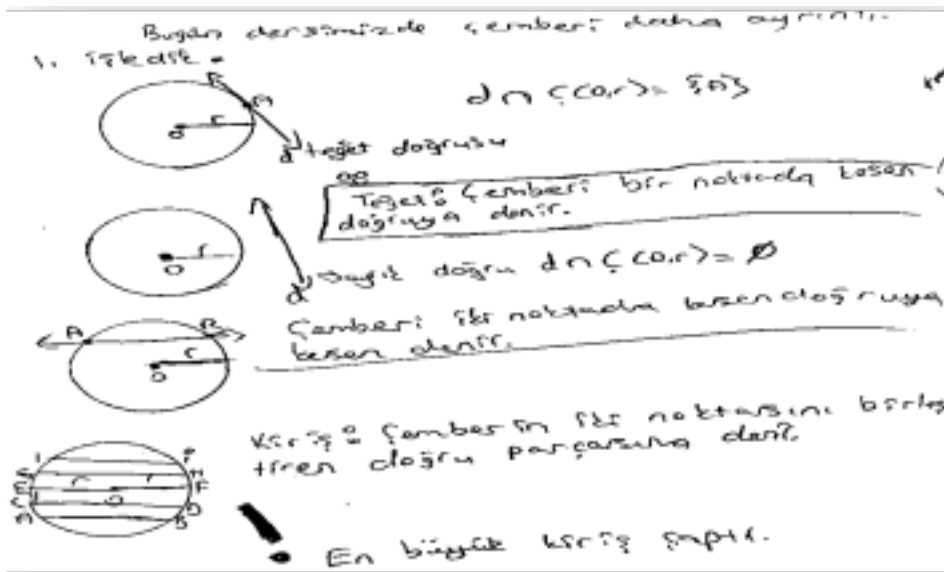 Bugün dersimizde çemberi daha ayrıntı.
lı işledik.
A
r
o
d
teğet doğrusu
d ∩ Ç(O,r) = {A}
Teğet: Çemberi bir noktada kesen
doğruya denir.
r
O
d
doğru d ∩ Ç(O,r) = ∅
A B
r
O
Çemberi iki noktada kesen doğruya
kesen denir.
Kiriş: Çemberin iki noktasını birleş
tiren doğru parçasına denir.
I P
H
E r O r F
C D
A B
! En büyük kiriş çaptır.